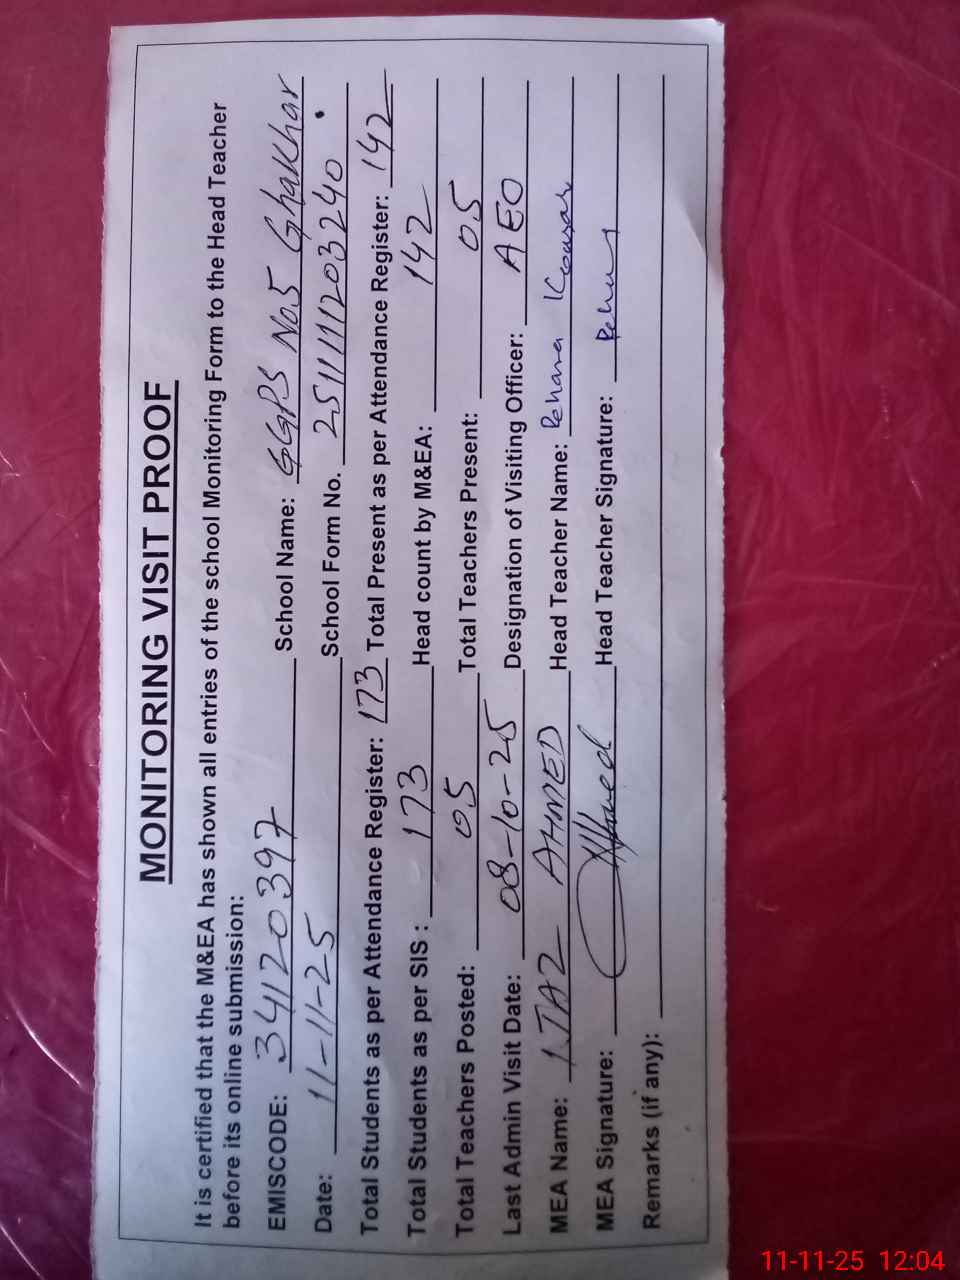 MONITORING VISIT PROOF
It is certified that the M&EA has shown all entries of the school Monitoring Form to the Head Teacher
before its online submission:
EMISCODE: 34120397 School Name: GGPS No5 Ghakhar
Date: 11-11-25 School Form No. 251111203240
Total Students as per Attendance Register: 173 Total Present as per Attendance Register: 142
Total Students as per SIS : 173 Head count by M&EA: 142
Total Teachers Posted: 05 Total Teachers Present: 05
Last Admin Visit Date: 08-10-25 Designation of Visiting Officer: AEO
MEA Name: IJAZ AHMED Head Teacher Name: Rehana Kousar
MEA Signature: Ahmed Head Teacher Signature:
Remarks (if any):
11-11-25 12:04